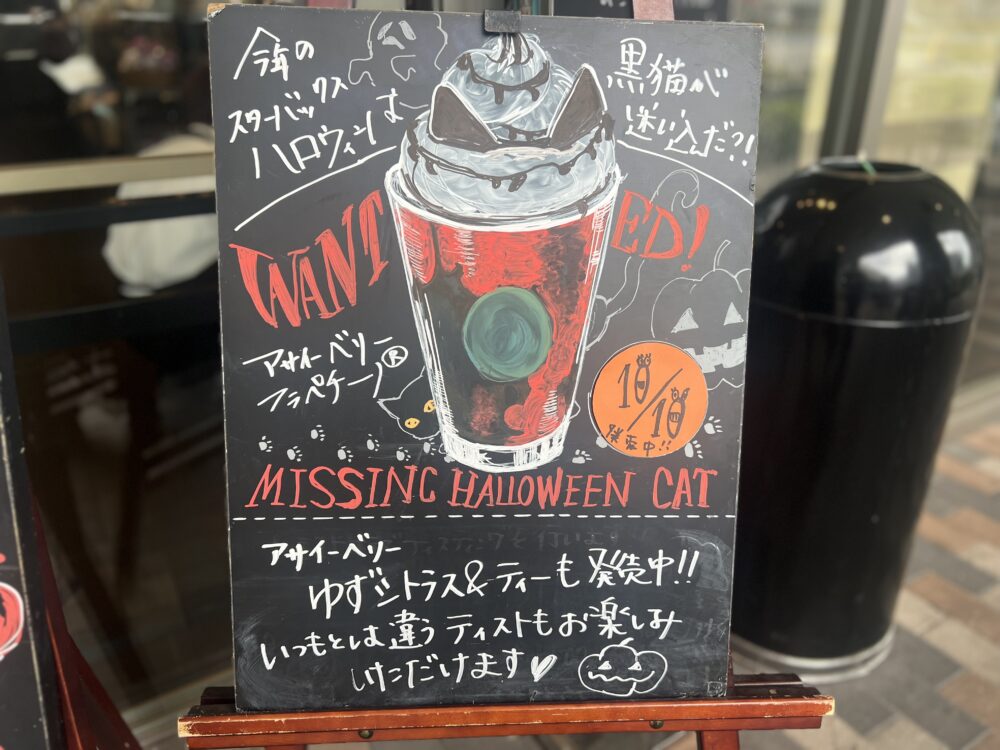 今年の
スターバックス
ハロウィンは
黒猫が
迷い込んだ?!
WANTED!
アサイーベリー
フラペチーノ®
10/10
発売中!!
MISSING HALLOWEEN CAT
アサイーベリー
ゆずシトラス&ティーも発売中!!
いつもとは違うテイストもお楽しみ
いただけます♡